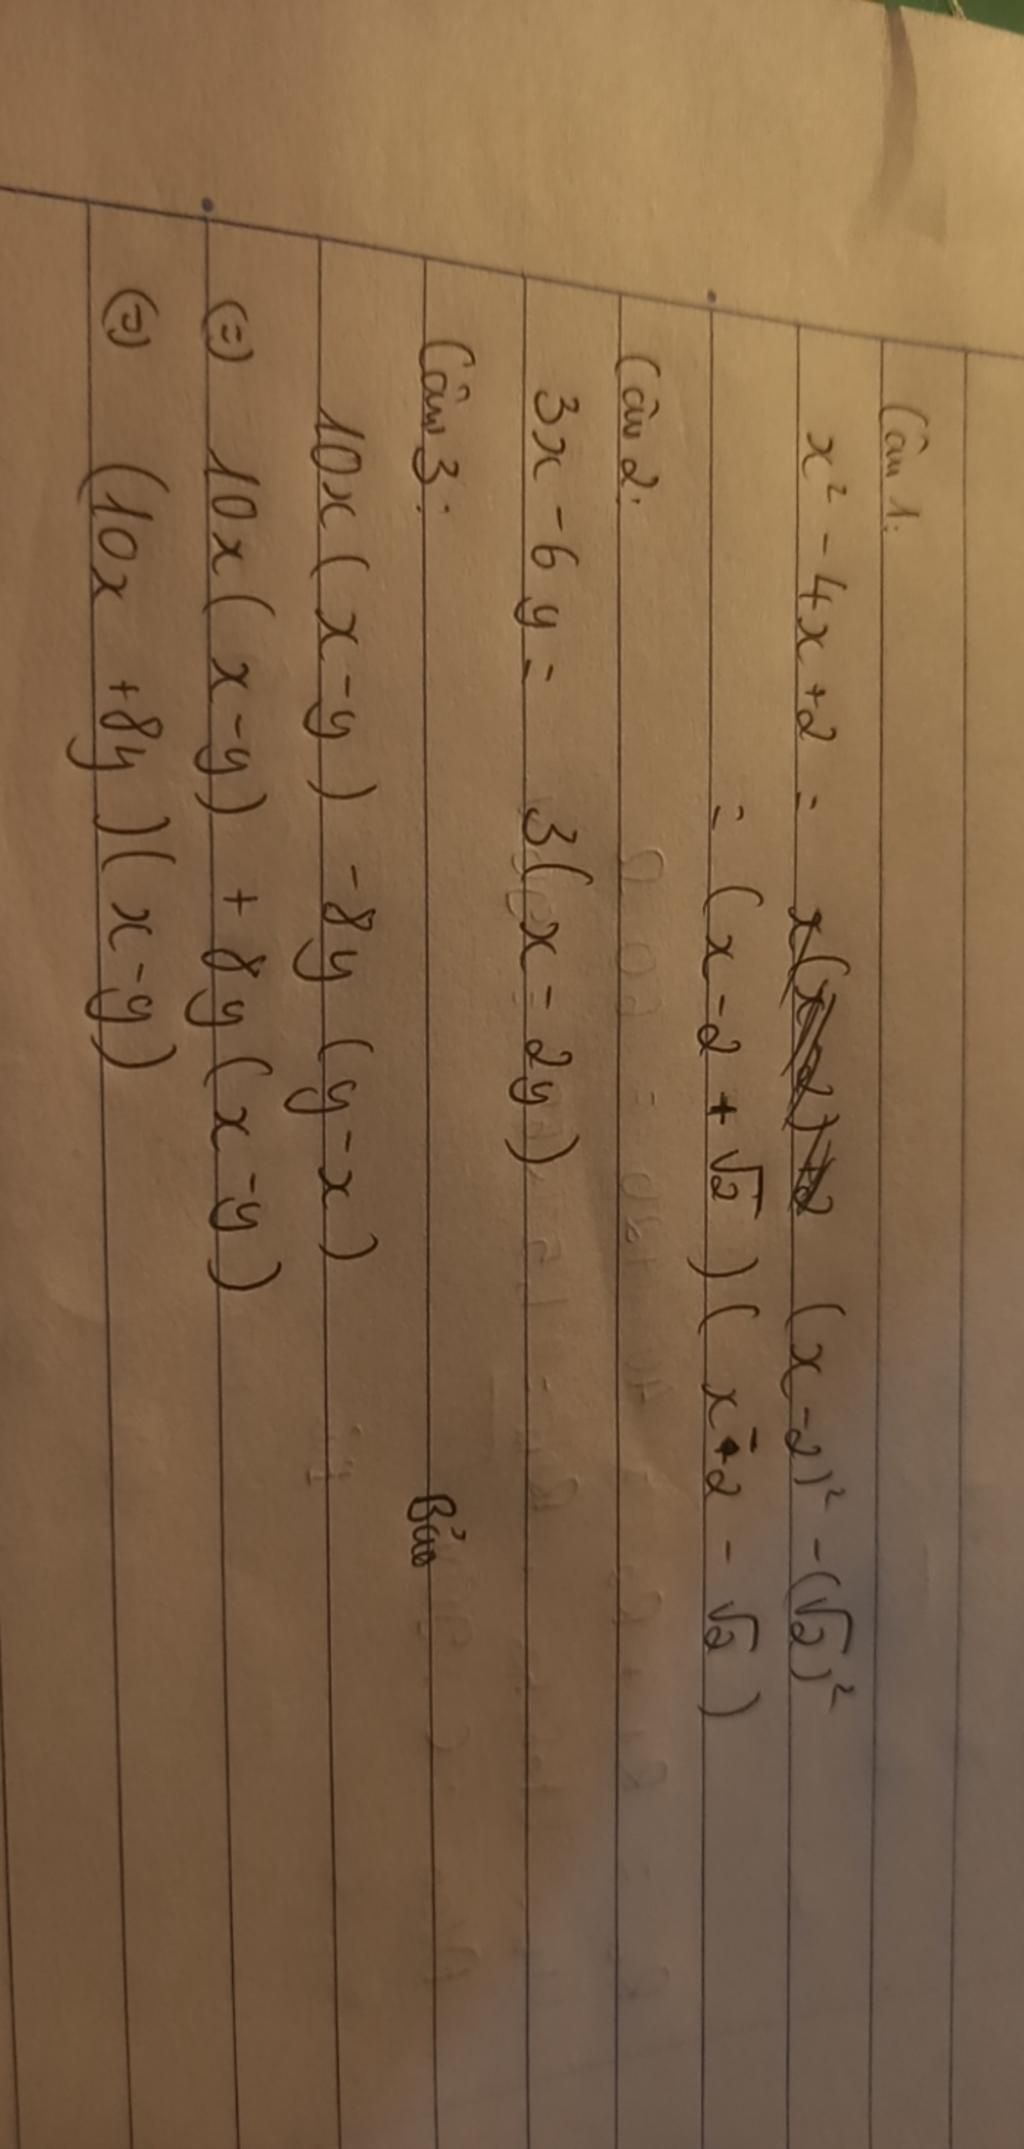 Câu 1:
x² - 4x + 2 = (x - 2)² - (√2)²
= (x - 2 + √2)(x - 2 - √2)
Câu 2:
3x - 6y = 3(x - 2y)
Câu 3: Bảo
10x(x - y) - 8y(y - x)
(=) 10x(x - y) + 8y(x - y)
(=) (10x + 8y)(x - y)